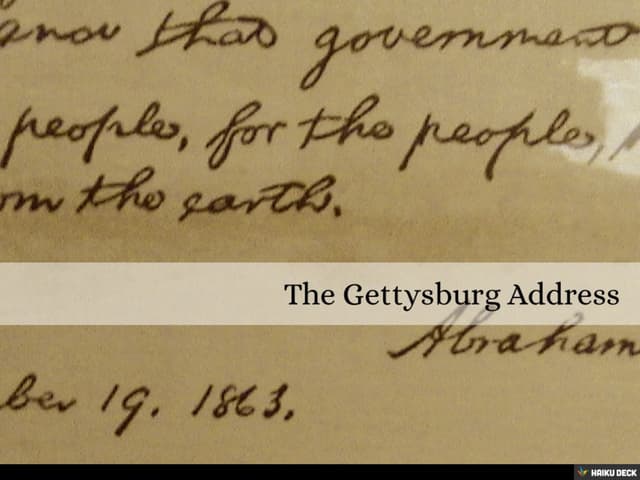 that government
people, for the people,
om the earth.
The Gettysburg Address
Abraham
ber 19. 1863.
HAIKU DECK